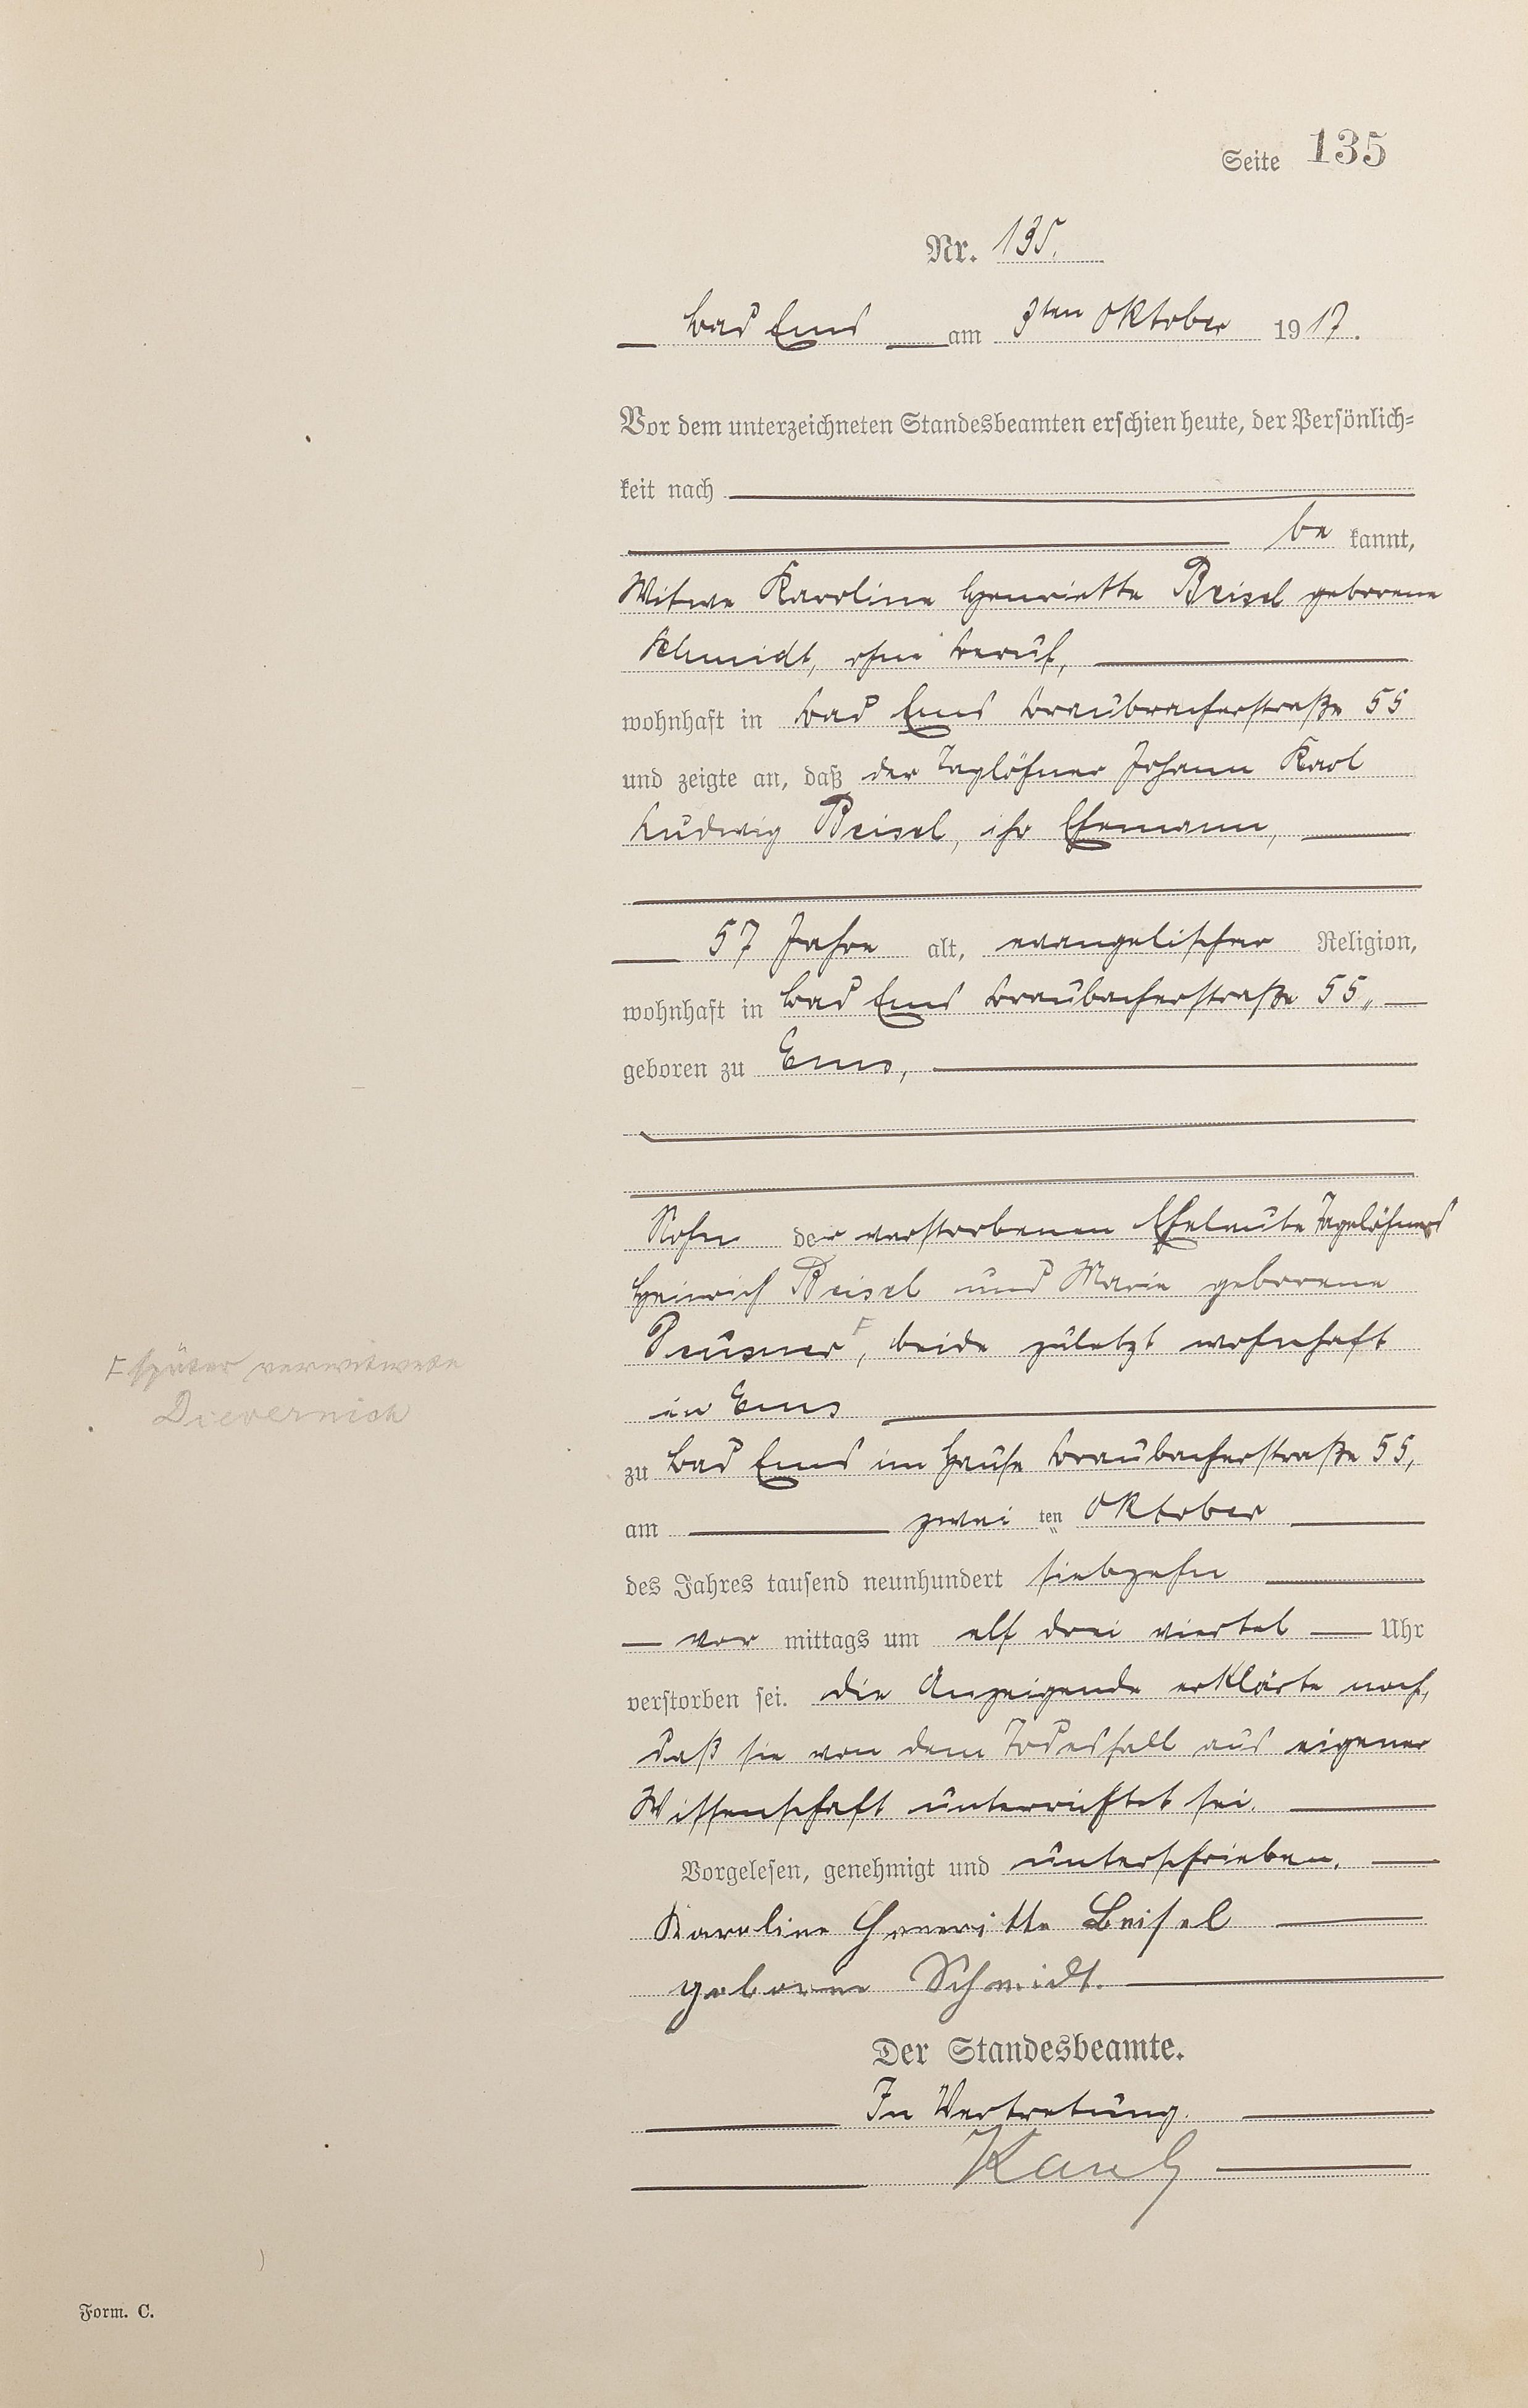 Seite 135
Nr. 135.
Bad Ems am 3ten Oktober 1917.
Vor dem unterzeichneten Standesbeamten erschien heute, der Persönlich-
keit nach
be kannt,
Witwe Karoline Henriette Beisel geborene
Schmidt, ohne Beruf,
wohnhaft in Bad Ems Braubacherstraße 55
und zeigte an, daß der Taglöhner Johann Karl
Ludwig Beisel, ihr Ehemann,
57 Jahre alt, evangelischer Religion,
wohnhaft in Bad Ems Braubacherstraße 55,
geboren zu Ems,
Sohn der verstorbenen Eheleute Tagelöhners
Heinrich Beisel und Marie geborene
F
, beide zuletzt wohnhaft
F später verwitwete
Dievernich
in Ems
zu Bad Ems im Hause Braubacherstraße 55,
am zwei ten Oktober
des Jahres tausend neunhundert siebzehn
vor mittags um elf drei viertel Uhr
verstorben sei. Die Anzeigende erklärte noch,
daß sie von dem Todesfall aus eigener
Wissenschaft unterrichtet sei.
Vorgelesen, genehmigt und unterschrieben.
Karoline Henritte Beisel
geborne Schmidt.
Der Standesbeamte.
In Vertretung.
Form. C.